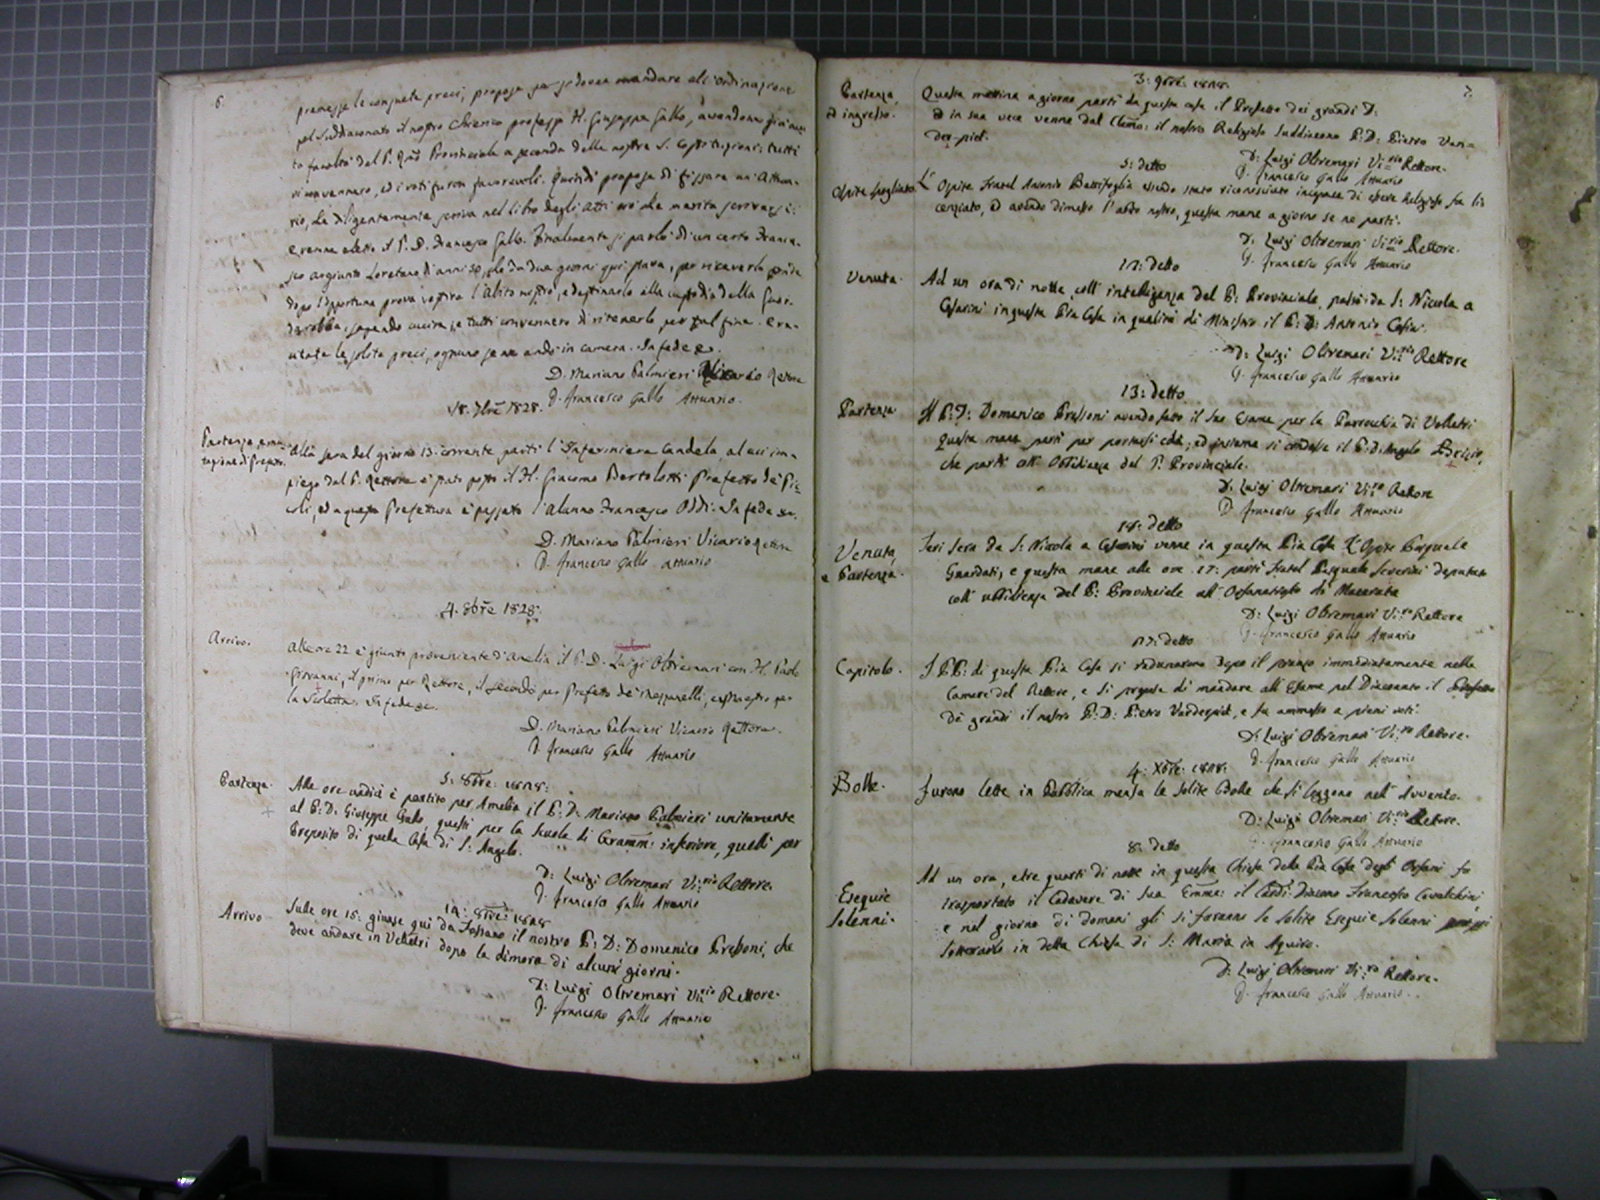 6.
premesse le consuete preci, propose se si dovea mandare all'ordinazione
pel Suddiaconato il nostro Chierico professo H. Giuseppe Gallo, avendone
to facoltà dal P. Provinciale a seconda delle nostre S. Costituzioni: tutti
convennero, ed i voti furon favorevoli. Quindi propose di fissare un Attua-
rio, che diligentemente scriva nel libro degli Atti ciò che merita
e venne eletto il P. D. Francesco Gallo. Finalmente si parlò di un certo France-
sco Loretano d'anni che da due giorni qui stava, per riceverlo
dopo l'opportuna prova vestire l'abito nostro, e destinarlo alla custodia della Guar-
darobba, sapendo cucire, e tutti convennero di ritenerlo per tal fine. e re-
citate le solite preci, ognuno se ne andò in camera. In fede &.
D. Mariano Palmieri Vicario Rettore
D. Francesco Gallo Attuario.
18. 7bre 1828.
Partenza, e mu-
tazione di Prefetti.
Alla sera del giorno 13. corrente partì l'Infermiere Candela, al cui im-
piego dal P. Rettore è stato posto il H. Giacomo Bertolotti Prefetto de' Pic-
coli, ed a questa Prefettura è passato l'alunno Francesco Oddi. In fede &.
D. Mariano Palmieri Vicario Rettore
D. Francesco Gallo Attuario
4. 8bre 1828.
Arrivo.
Alle ore 22 è giunto proveniente d'Amelia il P. D. Luigi Oltremari con H. Paolo
Giovanni, il primo per Rettore, il secondo per Prefetto de' Mezzanelli, e
la Scoletta. In fede &.
D. Mariano Palmieri Vicario Rettore.
D. Francesco Gallo Attuario
5: 8bre: 1828:
Partenza.
Alle ore undici è partito per Amelia il P: D: Mariano Palmieri unitamente
al P: D: Giuseppe Gallo, questi per la scuola di Gramm: inferiore, quelli per
Preposito di quella Casa di S: Angelo.
D: Luigi Oltremari Vi:rio Rettore.
D. Francesco Gallo Attuario
14: 8bre: 1828
Arrivo
Sulle ore 15: giunse qui da Fossano il nostro P: D: Domenico Presoni, che
deve andare in Velletri dopo la dimora di alcuni giorni.
D: Luigi Oltremari Vi:rio Rettore.
D. Francesco Gallo Attuario
7.
3: 9bre: 1828.
Partenza,
ed ingresso.
Questa mattina a giorno partì da questa casa il Prefetto dei grandi D:
ed in sua vece venne dal Clem:o: il nostro Religioso Suddiacono P: D: Pietro Van-
der-piet.
D: Luigi Oltremari Vi:rio Rettore.
D. Francesco Gallo Attuario
5: detto
Ospite spogliato
L'Ospite Fratel Antonio Battifoglia essendo stato riconosciuto incapace di essere Religioso fu li-
cenziato, ed avendo dimesso l'abito nostro, questa mane a giorno se ne partì.
D: Luigi Oltremari Vi:rio Rettore.
D. Francesco Gallo Attuario
12: detto
Venuta.
Ad un ora di notte coll' intelligenza del P: Provinciale, passò da S: Nicola a
Cesarini in questa Pia Casa in qualità di Ministro il P: D: Antonio
D: Luigi Oltremari Vi:rio Rettore
D. Francesco Gallo Attuario
13: detto
Partenza
Il P: D: Domenico Presoni avendo fatto il suo Esame per la Parrocchia di Velletri
questa mane partì per portarsi colà; ed insieme si condusse il P: D: Angelo Brizio,
che partì coll' Obbidienza del P: Provinciale.
D: Luigi Oltremari Vi:rio Rettore
D. Francesco Gallo Attuario
14: detto
Venuta,
e Partenza.
Jeri sera da S: Nicola a Cesarini venne in questa Pia Casa l'Ospite Pasquale
Guardati, e questa mane alle ore 17: partì Fratel Pasquale Severini deputato
coll' ubbidienza del P: Provinciale all' Orfanotrofio di Macerata
D: Luigi Oltremari Vi:rio Rettore
D. Francesco Gallo Attuario
17: detto
Capitolo.
I PP: di questa Pia Casa si radunarono dopo il pranzo immediatamente nella
Camera del Rettore, e si propose di mandare all' Esame pel Diaconato il Prefetto
de' grandi il nostro P: D: Pietro Vanderpiet, e fu ammesso a pieni voti.
D: Luigi Oltremari Vi:rio Rettore.
D. Francesco Gallo Attuario
4: Xbre: 1828:
Bolle.
Furono lette in Pubblica mensa le solite Bolle che si leggono nell' Avvento.
D: Luigi Oltremari Vi:rio Rettore.
D. Francesco Gallo Attuario
8: detto
Esequie
Solenni.
Ad un ora, e tre quarti di notte in questa Chiesa della Pia Casa degli Orfani fu
trasportato il Cadavere di Sua Emma: il Card: Diacono Francesco Cavalchini
e nel giorno di domani gli si faranno le solite Esequie Solenni
sotterrarlo in detta Chiesa di S: Maria in Aquiro.
D: Luigi Oltremari Vi:rio Rettore.
D. Francesco Gallo Attuario.